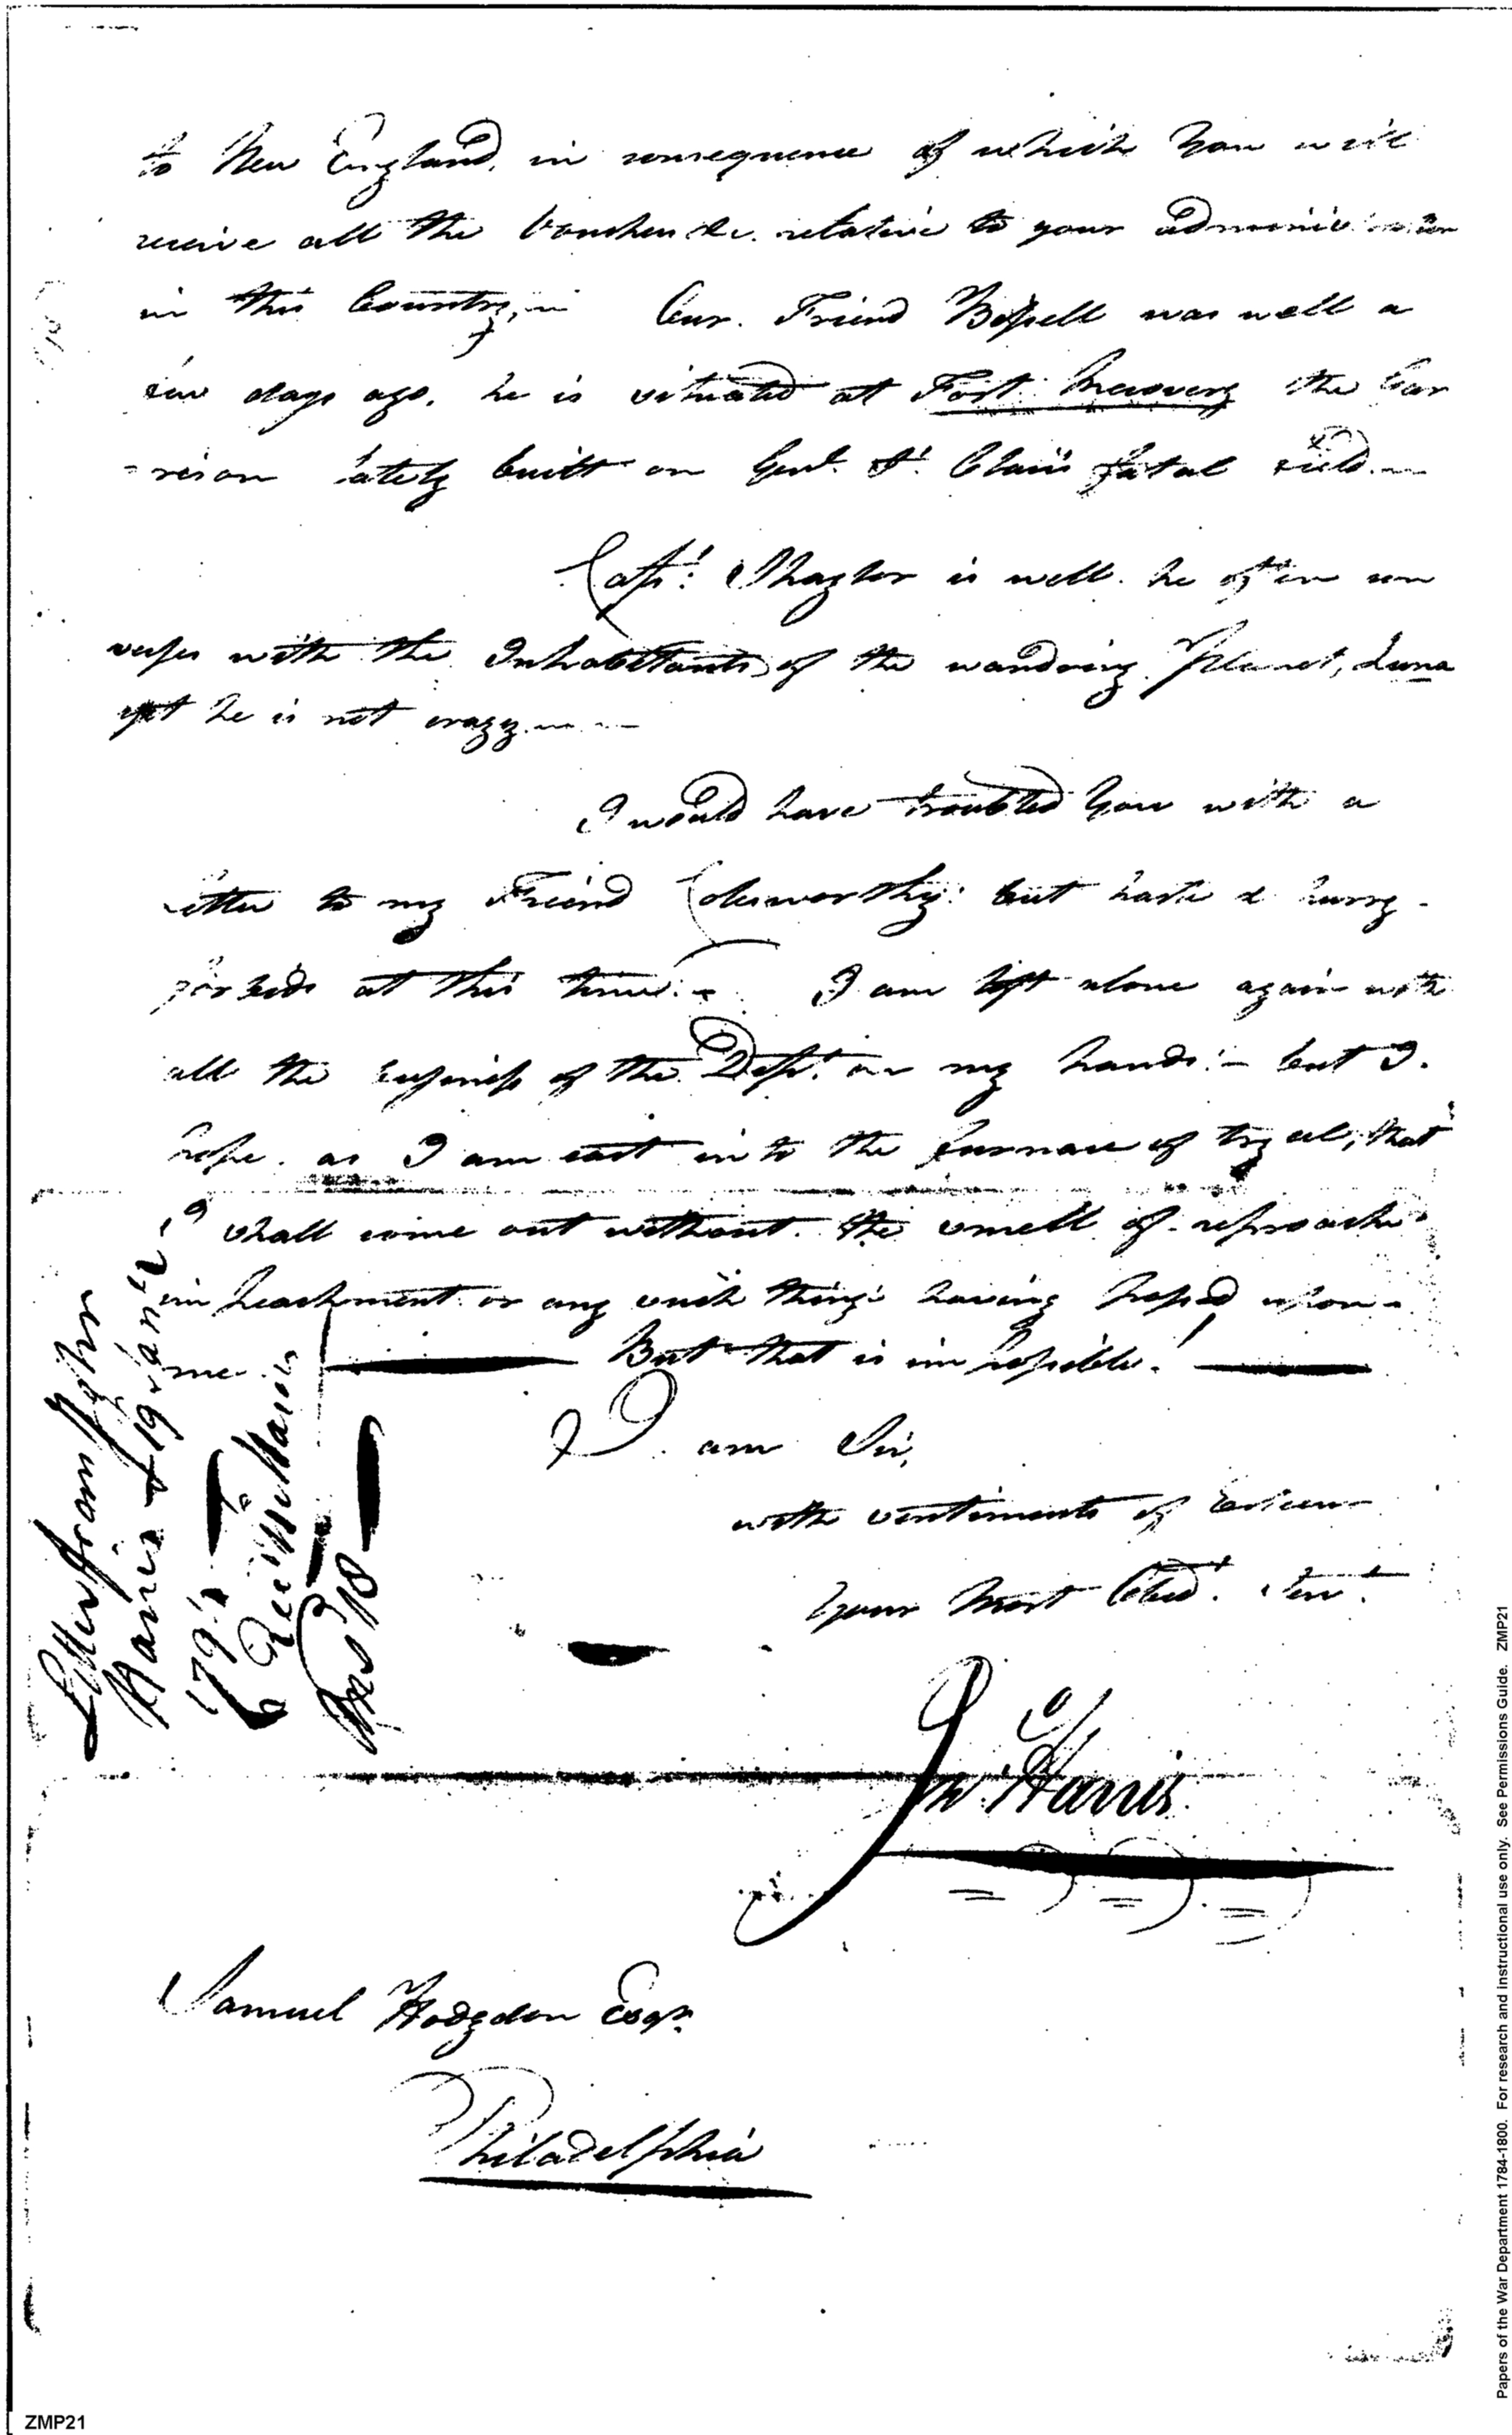 to New England, in consequence of which You will
receive all the Vouchers &c. relative to your administration
in this Country, Our Friend Bissell was well a
few days ago. he is situated at Fort Recovery the Gar
=rison lately built on Genl. St. Clair's fatal field.
Capt: Shaylor is well. he often con
verses with the Inhabitants of the wandring Planet, Luna
yet he is not crazy.
I would have troubled You with a
letter to my Friend Colesworthy: but haste & hurry
forbids at this time. I am left alone again with
all the business of the Dept. on my hands:- but I
hope. as I am cast into the furnace of tryal, that
I shall come out without the smell of reproach
impeachment or any such thing having passed upon
me. But that is impossible!
I am Sir,
with sentiments of Esteem
Your most Obed't. Serv't.
Jno Harris
Samuel Hodgdon Esqr.
Philadelphia
Letter from Jno
Harris 19 Jan'y
1794
Rec'd March
No 18
ZMP21
Papers of the War Department 1784-1800. For research and instructional use only. See Permissions Guide. ZMP21